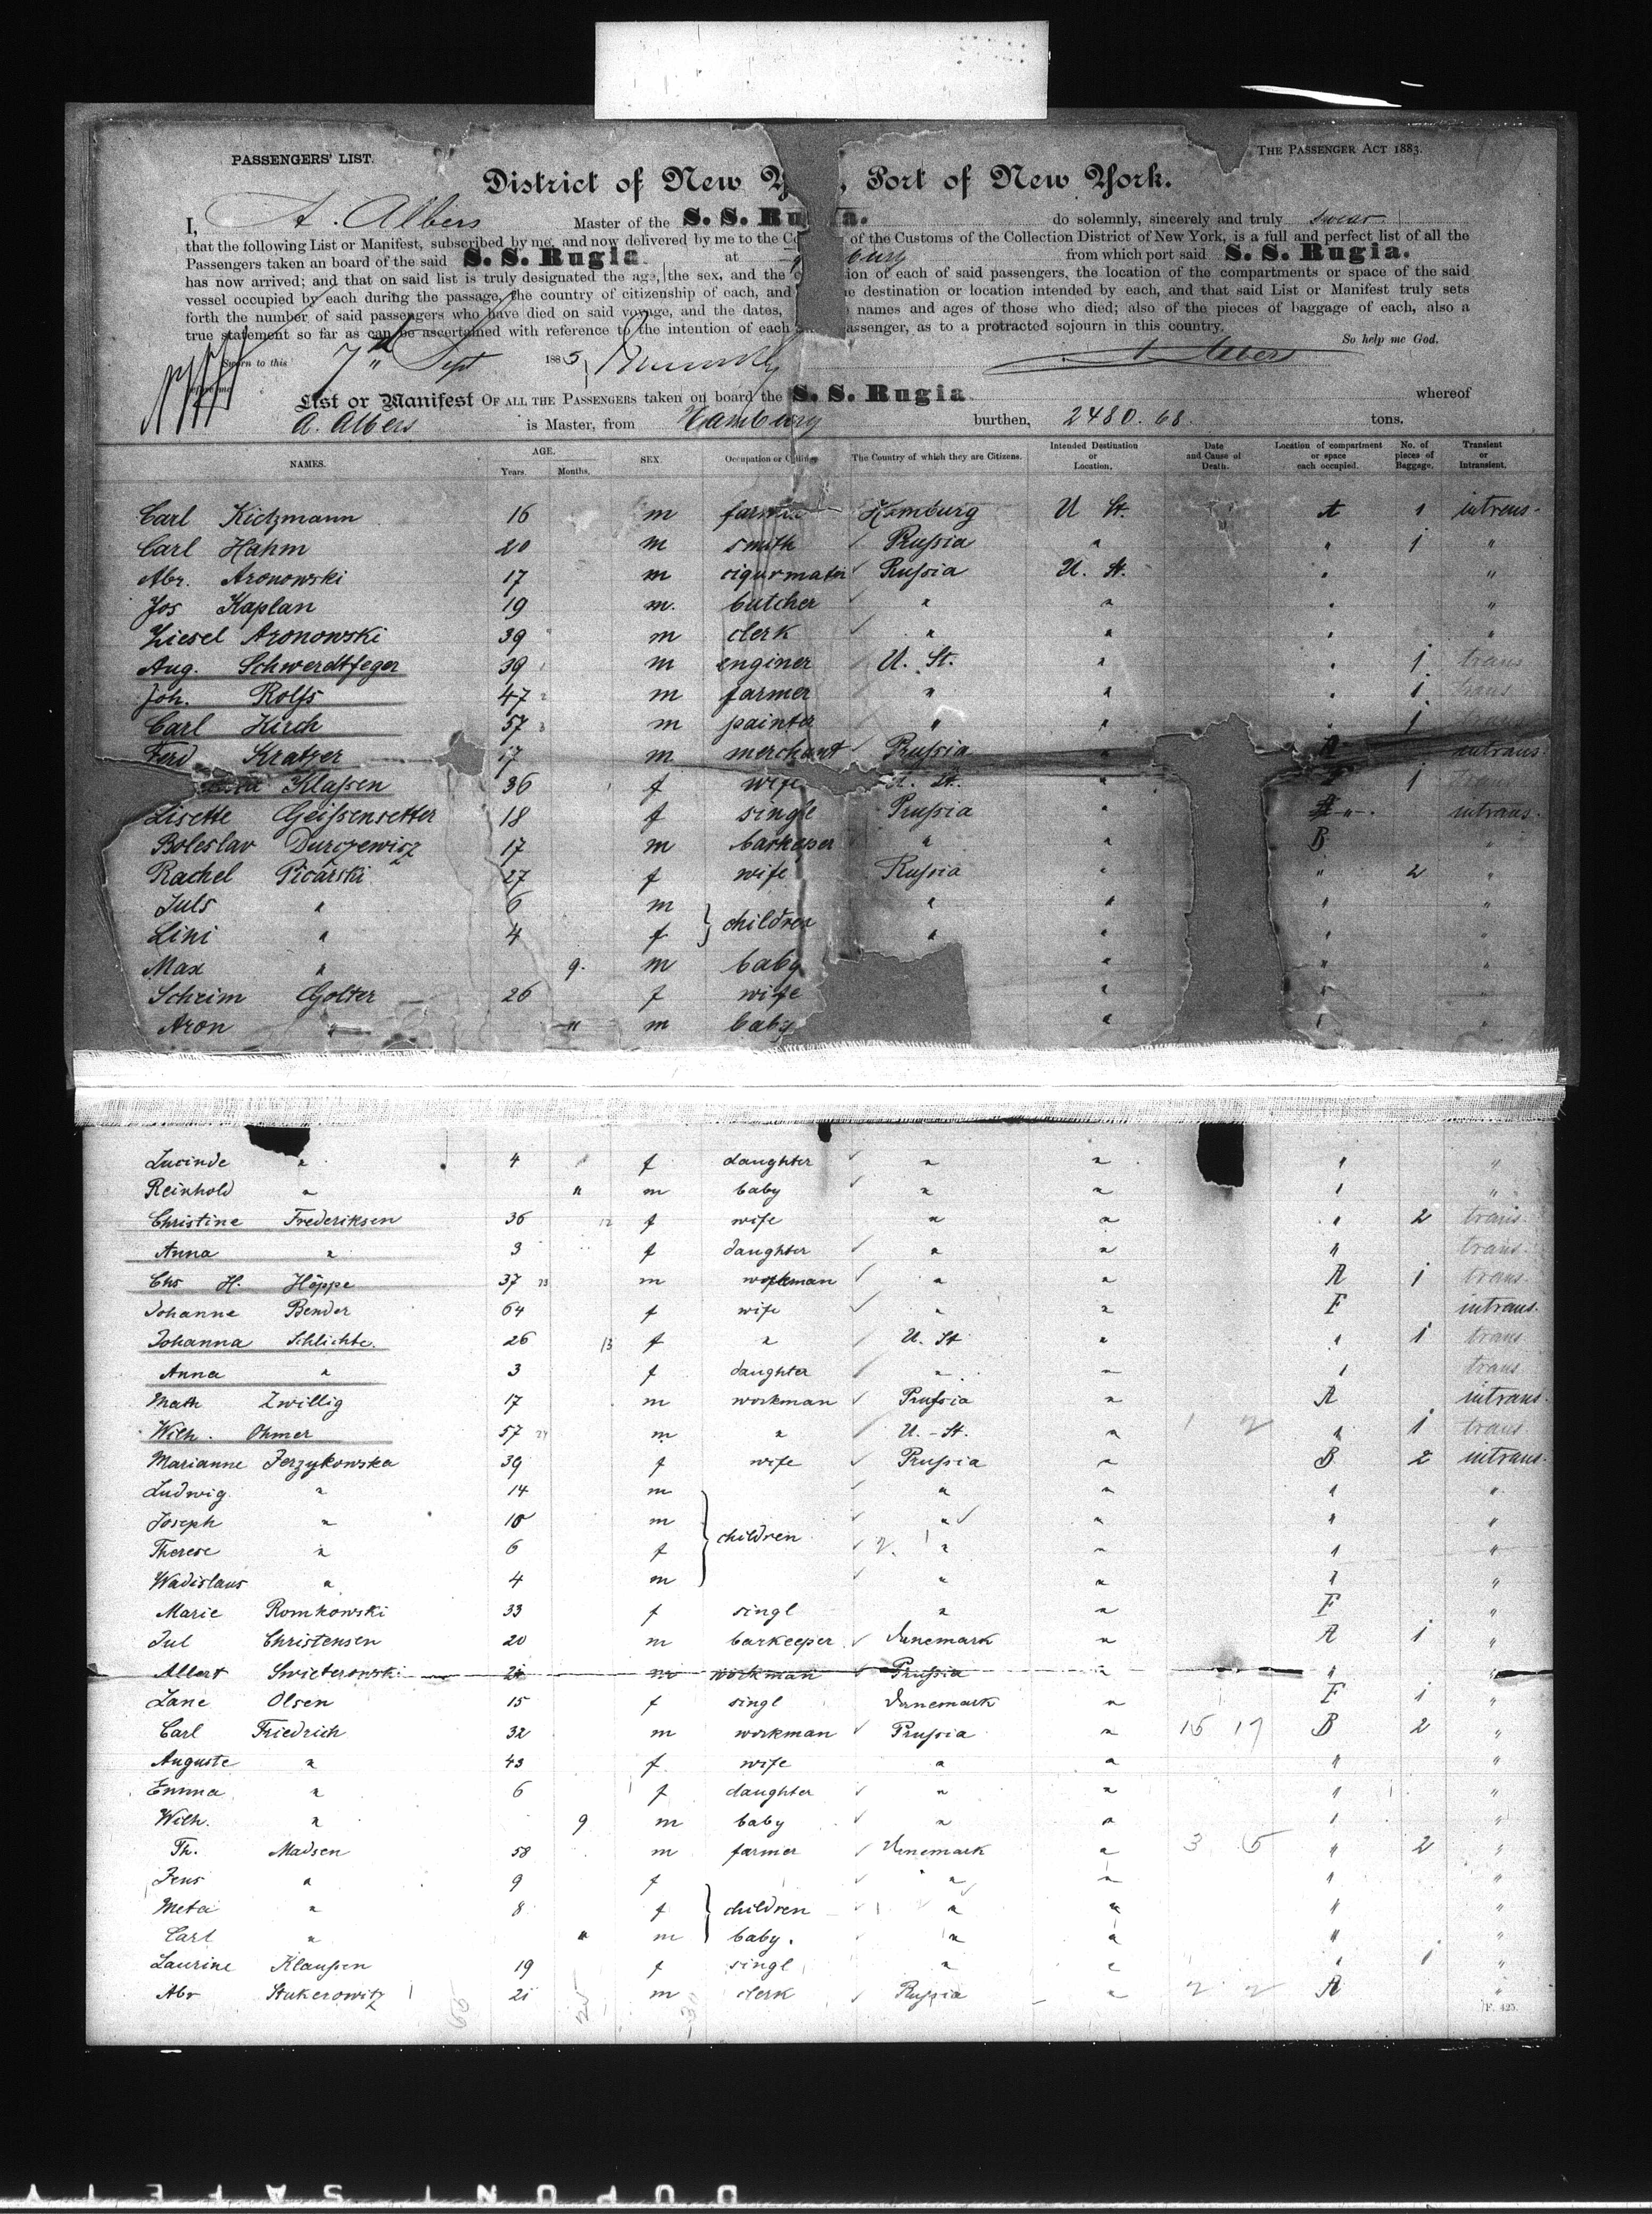 PASSENGERS' LIST.
THE PASSENGER ACT 1883.
District of New Y , Port of New York.
I, A. Albers Master of the S. S. Ru a. do solemnly, sincerely and truly swear
that the following List or Manifest, subscribed by me, and now delivered by me to the Co of the Customs of the Collection District of New York, is a full and perfect list of all the
Passengers taken an board of the said S. S. Rugia at burg from which port said S. S. Rugia.
has now arrived; and that on said list is truly designated the age, the sex, and the ion of each of said passengers, the location of the compartments or space of the said
vessel occupied by each during the passage, the country of citizenship of each, and destination or location intended by each, and that said List or Manifest truly sets
forth the number of said passengers who have died on said voyage, and the dates, names and ages of those who died; also of the pieces of baggage of each, also a
true statement so far as can be ascertained with reference to the intention of each assenger, as to a protracted sojourn in this country.
So help me God.
Sworn to this 7th Sept 1885 A. Albers
before me
List or Manifest OF ALL THE PASSENGERS taken on board the S. S. Rugia whereof
A. Albers is Master, from Hamburg burthen, 2480.68. tons.
NAMES. AGE. Years. Months. SEX. Occupation or Calling The Country of which they are Citizens. Intended Destination or Location. Date and Cause of Death. Location of compartment or space each occupied. No. of pieces of Baggage. Transient or Intransient.
Carl Kietzmann 16 m farmer Hamburg U St. A 1 intrans.
Carl Hahm 20 m smith Prussia " " 1 "
Abr. Aronowski 17 m cigarmaker Russia U. St. " "
Jos Kaplan 19 m. butcher " " " "
Liesel Aronowski 39 m clerk " " " "
Aug. Schwerdtfeger 39 m enginer U. St. " " 1 trans
Joh. Rolfs 47 m farmer " " " 1 trans
Carl Kirch 57 m painter " " 1 trans
Ferd Kratzer 17 m merchant Prussia " A intrans.
Klassen 36 f wife U. St. " 1 trans
Lisette Geissensetter 18 f single Prussia " " intrans.
Boleslav Durczewicz 17 m barkeeper " " B "
Rachel Picarski 27 f wife Russia " " 2 "
Juls " 6 m children " " " "
Lini " 4 f " " " "
Max " 9. m baby " " "
Scheim Golter 26 f wife " " "
Aron " " m baby " " "
Lucinde " 4 f daughter " " " "
Reinhold " " m baby " " " "
Christine Frederiksen 36 12 f wife " " " 2 trans.
Anna " 3 f daughter " " " trans.
Chs H. Höppe 37 23 m workman " " A 1 trans.
Johanne Bender 64 f wife " " F intrans.
Johanna Schlichte. 26 13 f " U. St " " 1 trans
Anna " 3 f daughter " " " trans
Math Zwillig 17 m workman Prussia " A intrans.
Wilh. Ohmer 57 24 m " U. St. " 1 2 " 1 trans
Marianne Jerzykowska 39 f wife Prussia " B 2 intrans.
Ludwig " 14 m " " " "
Joseph " 10 m children " " " "
Therese " 6 f " " " "
Wadislaus " 4 m " " " "
Marie Romkowski 33 f singl " " F "
Jul Christensen 20 m barkeeper Danemark " A 1 "
Albert Swieterowski m workman Prussia " " "
Lane Olsen 15 f singl Danemark " F 1 "
Carl Friedrich 32 m workman Prussia " 15 17 B 2 "
Auguste " 43 f wife " " " "
Emma " 6 f daughter " " " "
Wilh. " 9 m baby " " " "
Th. Madsen 58 m farmer Danemark " 3 5 " 2 "
Jens " 9 f " " " "
Meta " 8 f children " " " "
Carl " " m baby. " " " "
Laurine Klaussen 19 f singl " " " 1 "
Abr Stukerowitz 21 m clerk Russia " 2 2 A "
F. 425.
DUPONT SAFETY